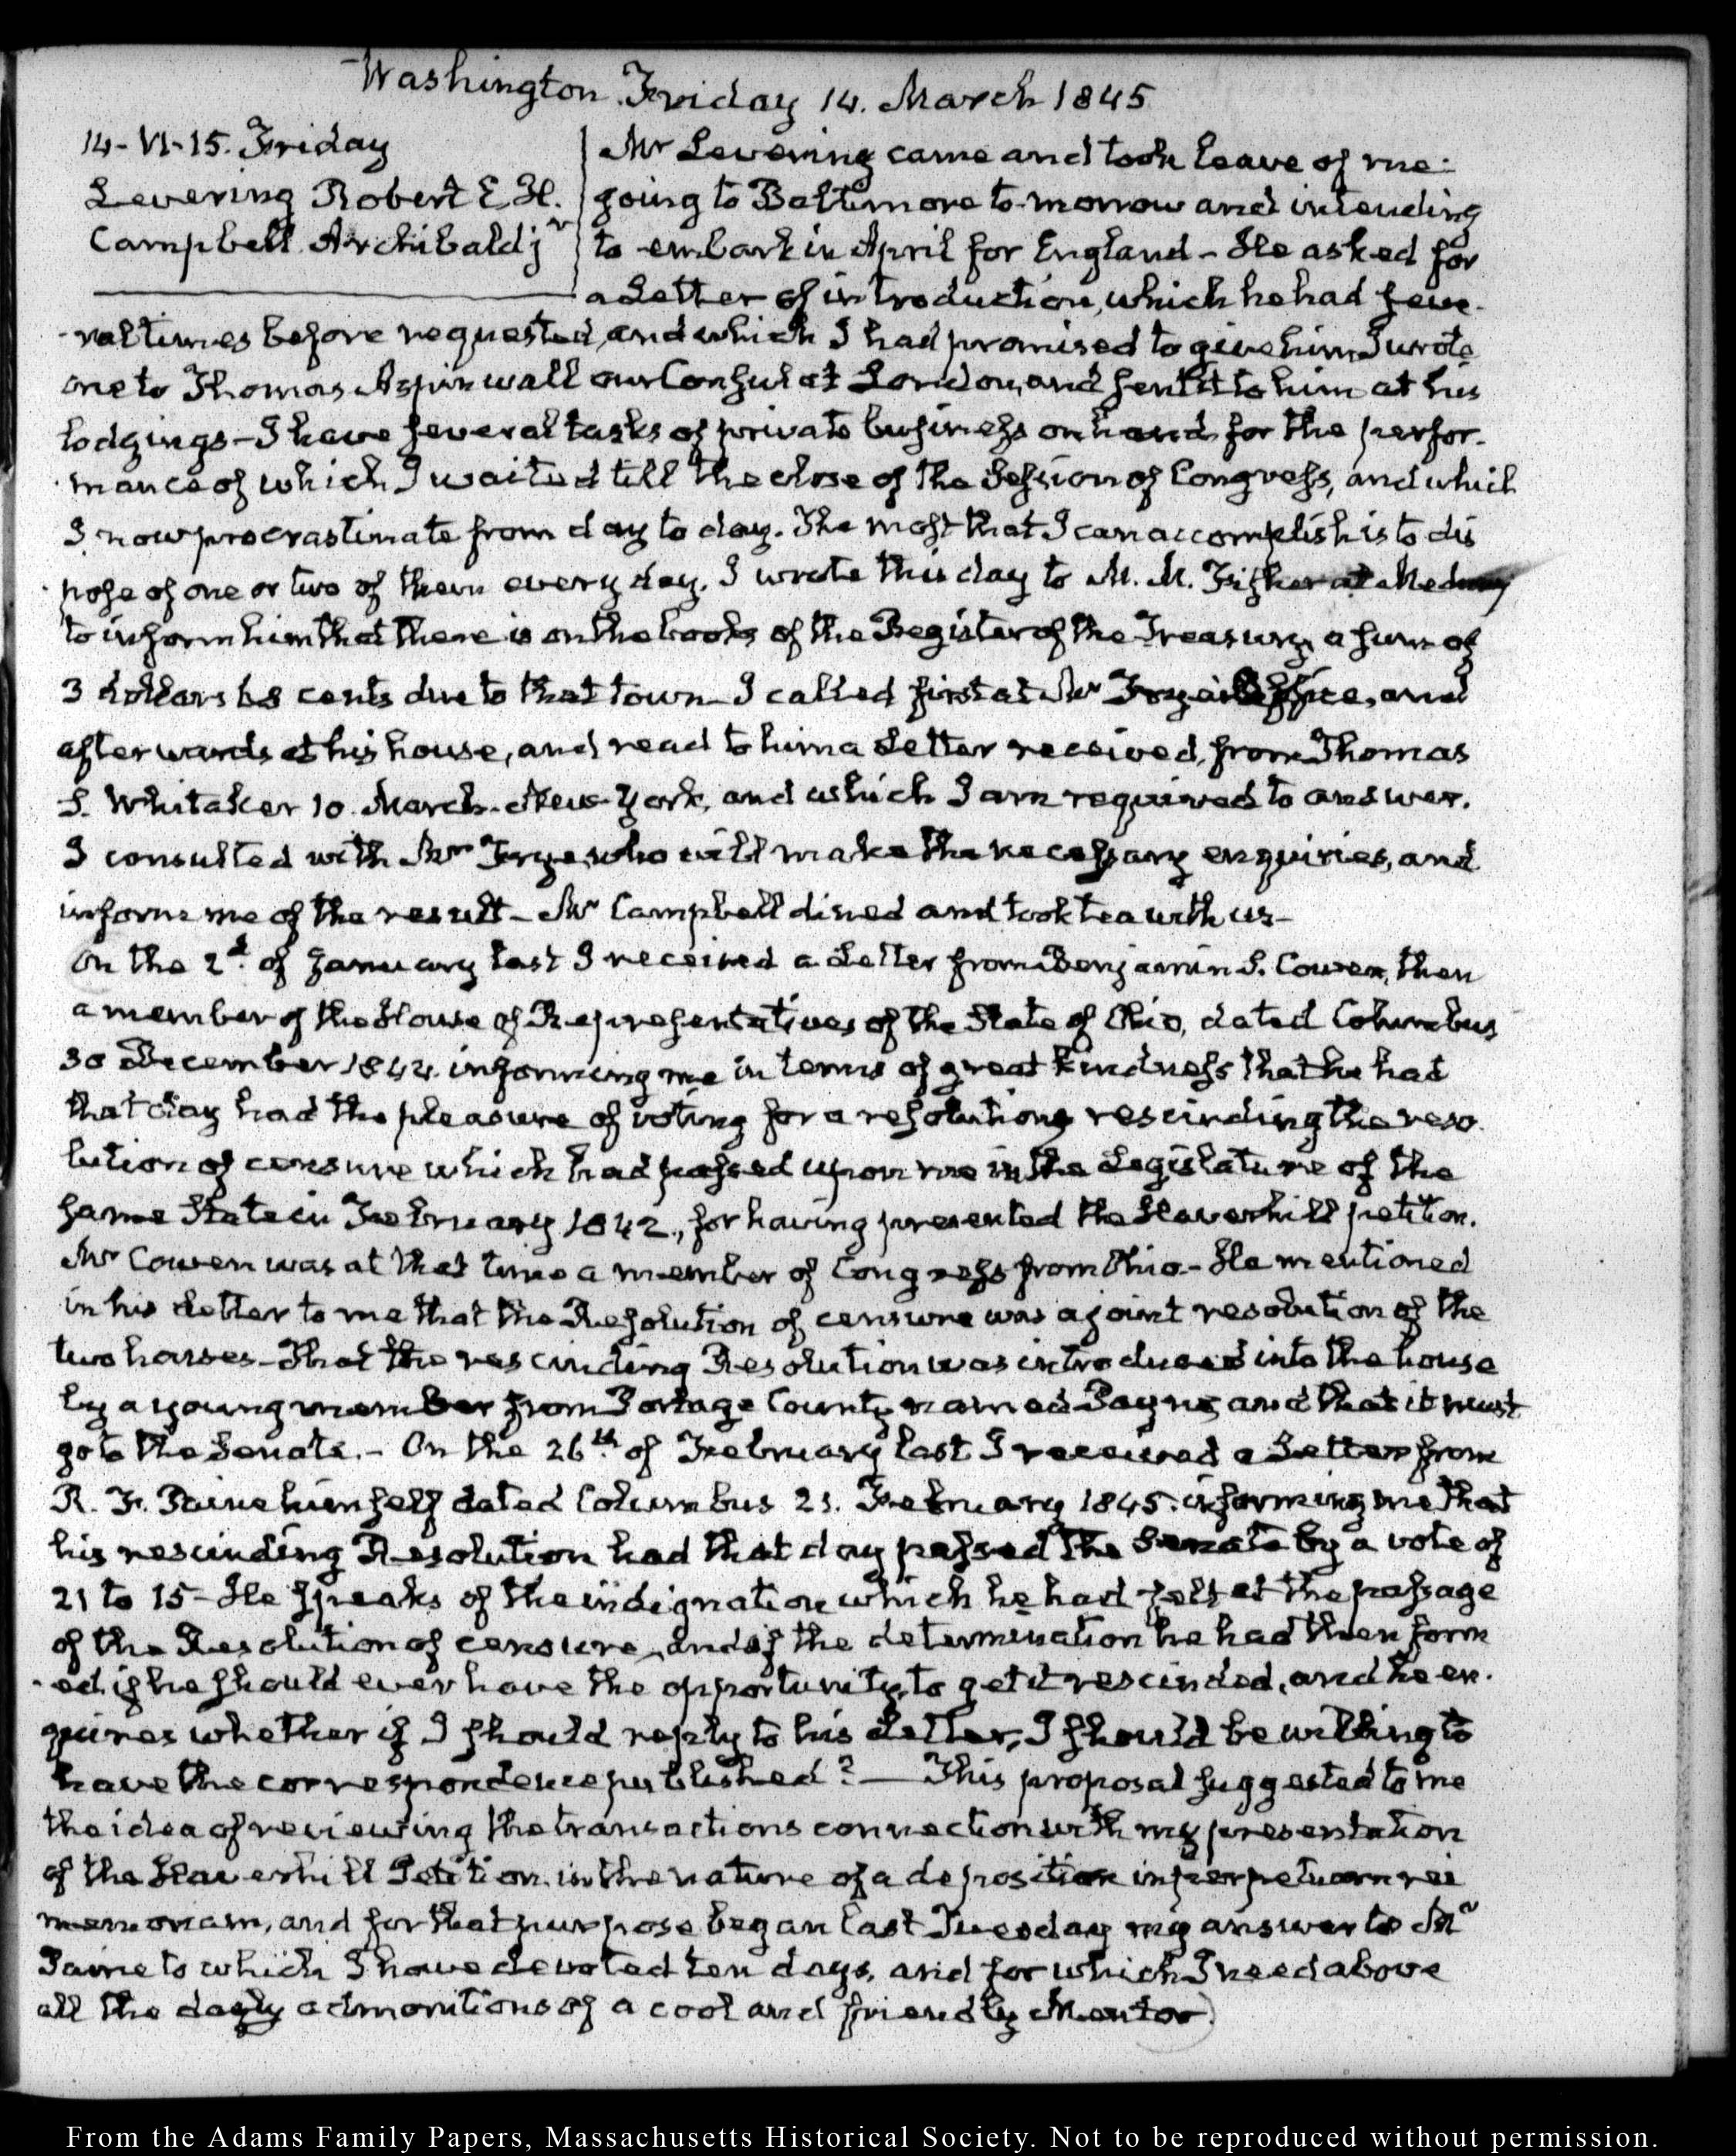 Washington Friday 14. March 1845
14-VI-15. Friday
Levering Robert E. H.
Campbell Archibald jr
Mr Levering came and took leave of me:
going to Baltimore to-morrow and intending
to embark in April for England - He asked for
a Letter of introduction, which he had seve-
ral times before requested, and which I had promised to give him I wrote
one to Thomas Aspinwall our Consul at London, and sent it to him at his
lodgings - I have several tasks of private business on hand for the perfor-
mance of which I waited till the close of the Session of Congress, and which
I now procrastinate from day to day. The most that I can accomplish is to dis
pose of one or two of them every day. I wrote this day to M. M. Fisher at Medway
to inform him that there is on the books of the Register of the Treasury a sum of
3 dollars 68 cents due to that town - I called first at Mr Frye's Office, and
afterwards at his house, and read to him a Letter received, from Thomas
S. Whitaker 10 March. New-York, and which I am required to answer.
I consulted with Mr Frye, who will make the necessary enquiries, and
inform me of the result - Mr Campbell dined and took tea with us -
On the 2d. of January last I received a Letter from Benjamin S. Cowen, then
a member of the House of Representatives of the State of Ohio, dated Columbus
30 December 1844. informing me in terms of great kindness that he had
that day had the pleasure of voting for a resolutions rescinding the reso-
lution of censure which had passed upon me in the Legislature of the
same State in February 1842., for having presented the Haverhill petition.
Mr Cowen was at that time a member of Congress from Ohio - He mentioned
in his Letter to me that the Resolution of censure was a joint resolution of the
two houses - That the rescinding Resolution was introduced into the house
by a young member from Portage County named Payne and that it must
go to the Senate. - On the 26th. of February last I received a Letter from
R. F. Paine himself dated Columbus 21. February 1845. informing me that
his rescinding Resolution had that day passed the Senate by a vote of
21 to 15 - He speaks of the indignation which he had felt at the passage
of the Resolution of censure, and of the determination he had then form
ed if he should ever have the opportunity, to get it rescinded, and he en-
quires whether if I should reply to his Letter, I should be willing to
have the correspondence published? — This proposal suggested to me
the idea of reviewing the transactions connection with my presentation
of the Haverhill Petition in the nature of a deposition in perpetuam rei
memoriam, and for that purpose began last Tuesday my answer to Mr
Paine to which I have devoted ten days, and for which I need above
all the daily admonitions of a cool and friendly Mentor)
From the Adams Family Papers, Massachusetts Historical Society. Not to be reproduced without permission.